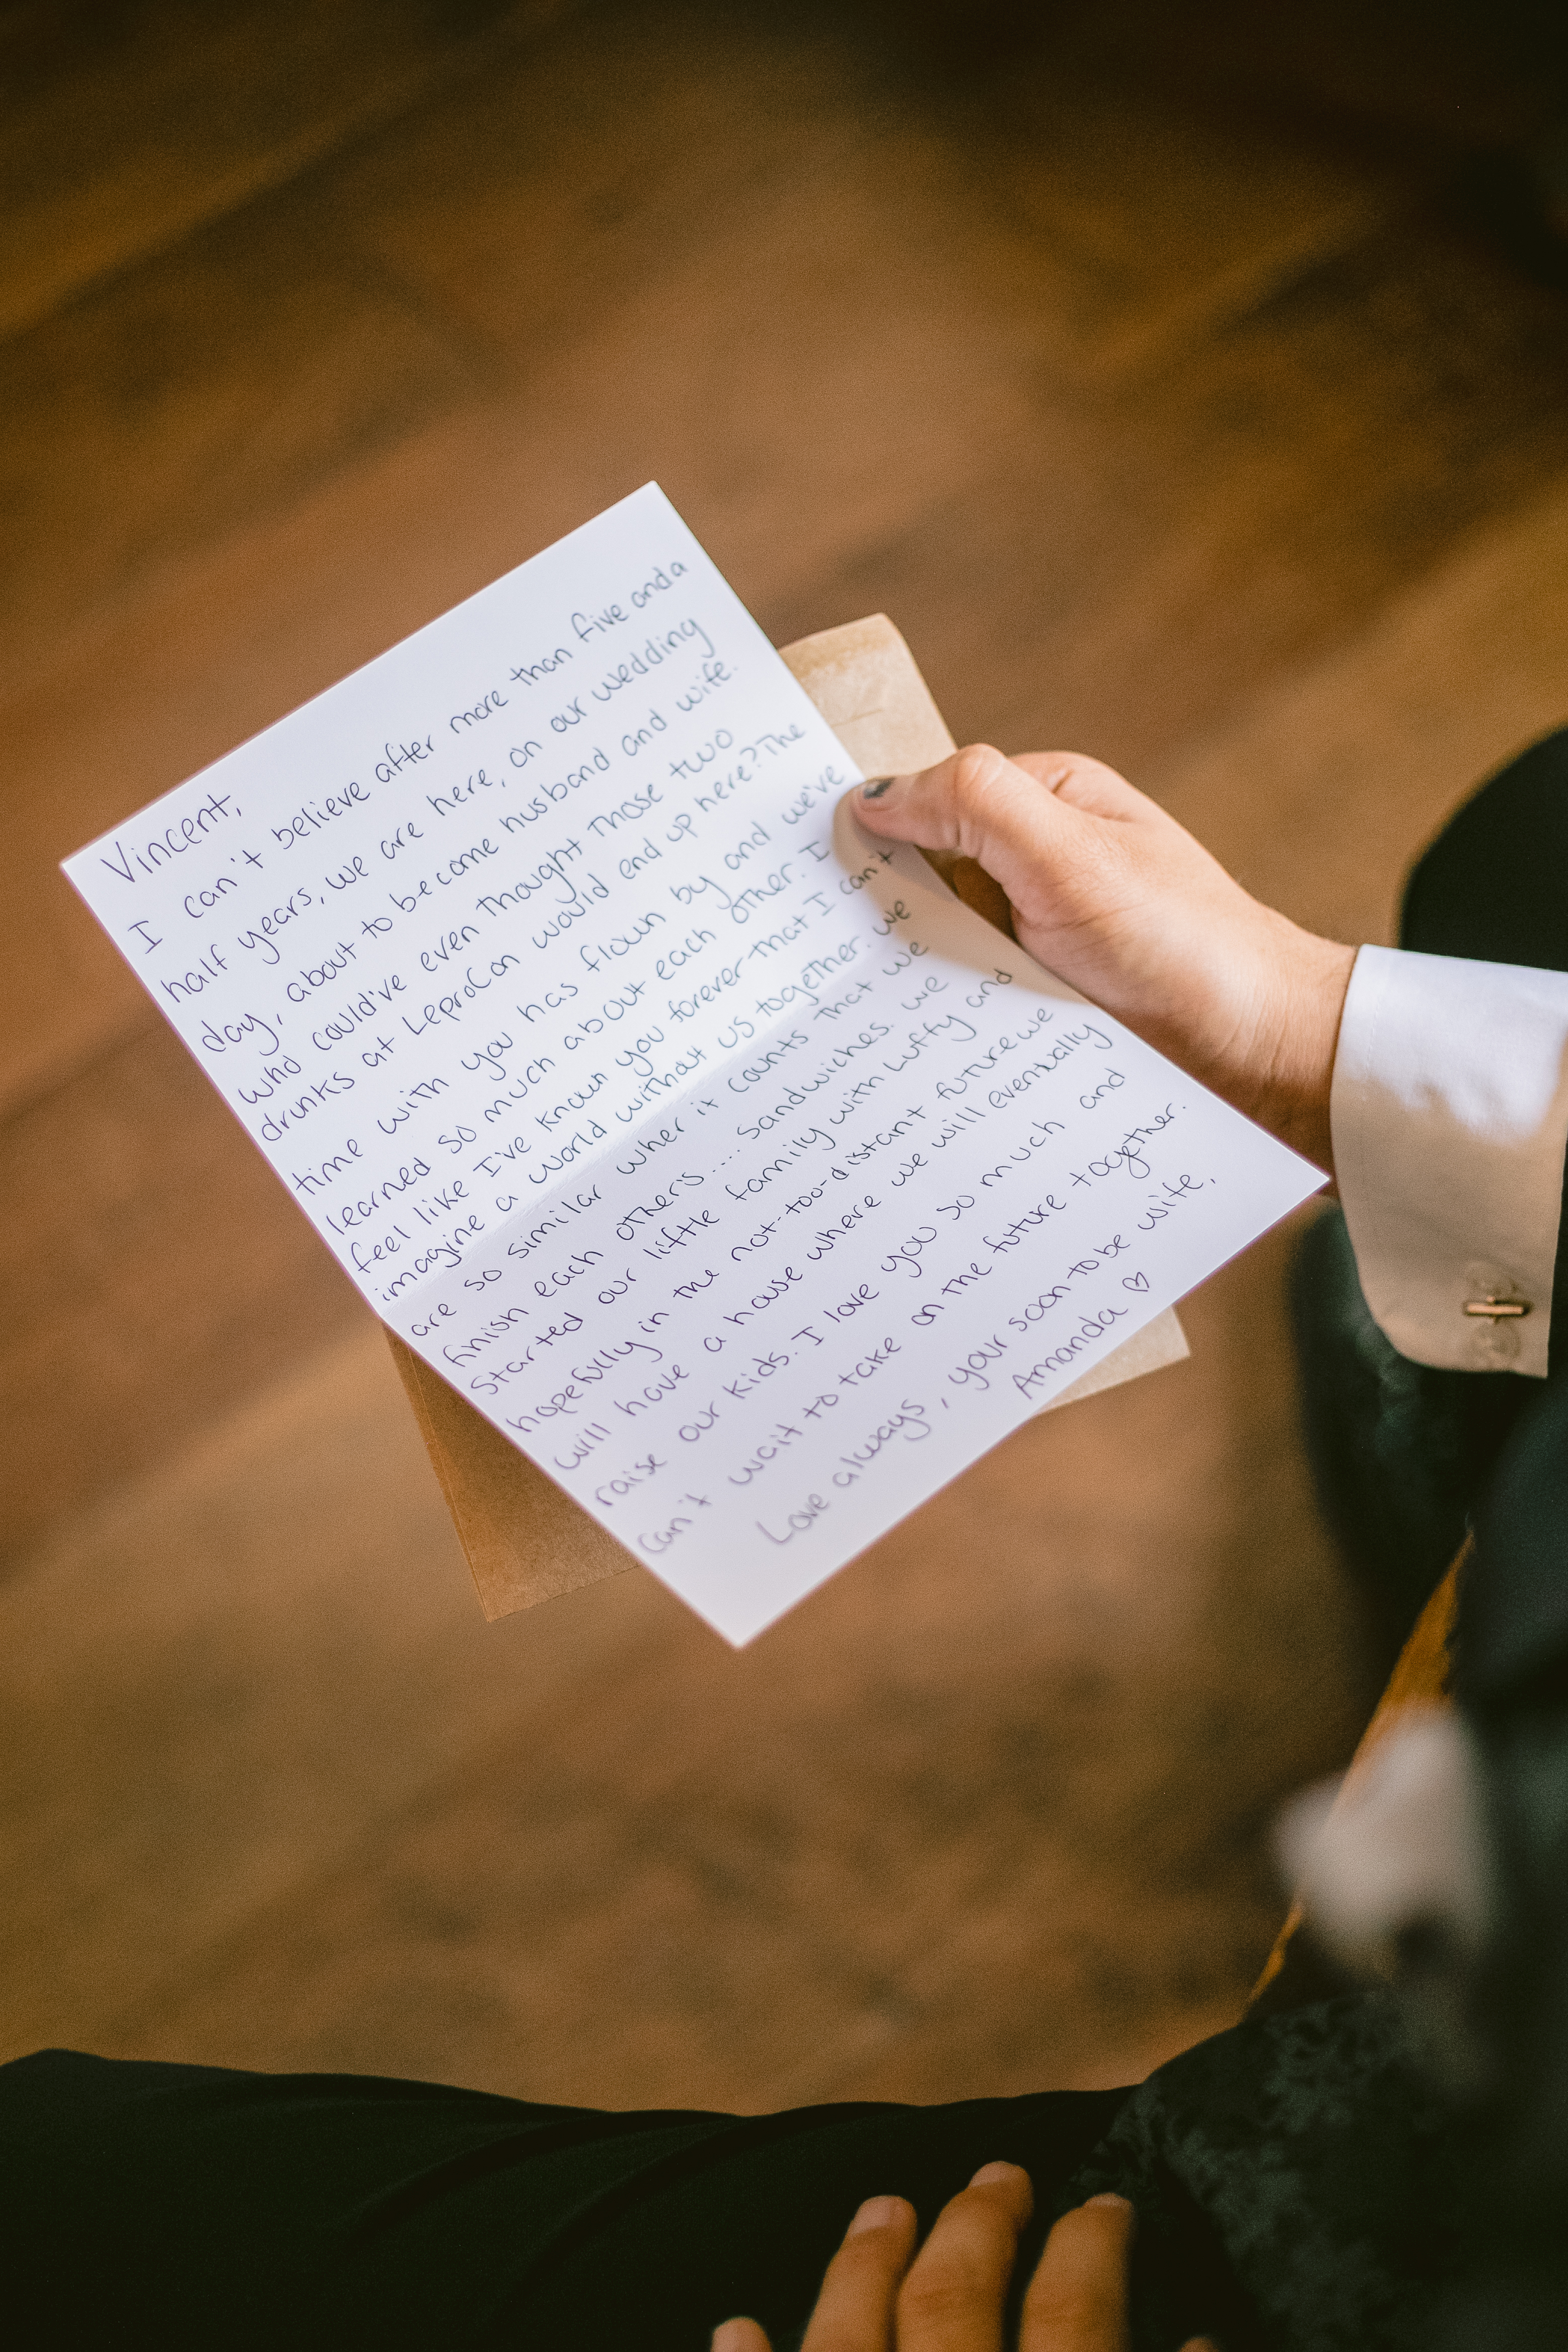 Vincent,
I can't believe after more than five and a
half years, we are here, on our wedding
day, about to become husband and wife.
Who could've even thought those two
drunks at LeproCon would end up here? The
time with you has flown by and we've
learned so much about each other. I
feel like I've known you forever that I can't
imagine a world without us together. We
are so similar wher it counts that we
finish each others.... sandwiches. We
started our little family with Luffy and
hopefully in the not-too-distant future we
will have a house where we will eventually
raise our kids. I love you so much and
can't wait to take on the future together.
Love always, your soon to be wife,
Amanda ♡